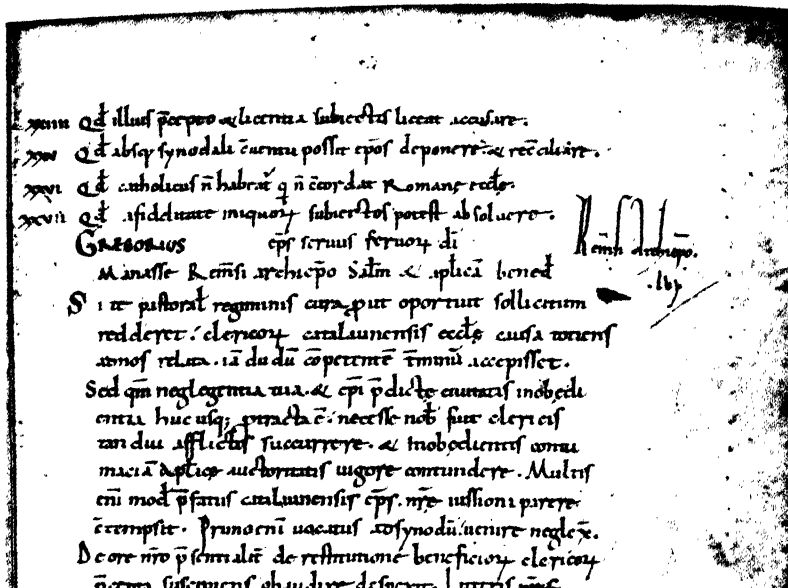 xxiiii Qd̄ illius p̄cepto & licentia subiectis liceat accusare.
xxv Qd̄ absq; synodali c̄uentu possit ep̄os deponere & rec̄ciliare.
xxvi Qd̄ catholicus n̄ habeat᷑ q n̄ c̄cordat Romanę eccłę.
xxvii Qd̄ afidelitate iniquoꝝ subiectos potest absoluere.
GREGORIUS ep̄s seruus seruoꝝ dī
Remn̄ archiepo.
Manasse Rem̄si archiep̄o Sałm & aplicā bened̄
Si te pastorał regiminis cura ꝓut oportuit sollicitum
redderet. clericoꝝ catalaunensis eccłę causa totiens
adnos relata. iā dudū cōpetentē t̄minū accepisset.
Sed qm̄ neglegentia tua. & ep̄i p̄dictę ciuitatis inobedi
entia huc usq; ꝓtracta ē. necesse nob̄ fuit clericis
tan diu afflictis succurrere. & inobedientis contu
maciā aplicę auctoritatis uigore contundere. Multis
eni mod̄ p̄fatus catalaunensis ep̄s. nr̄e iussioni parere
c̄tempsit. Primo eni uocatus ad synodū. uenire neglex̄.
De ore nr̄o p̄sentialit̄ de restitutione beneficioꝝ clericoꝝ
suscipiens obaudire